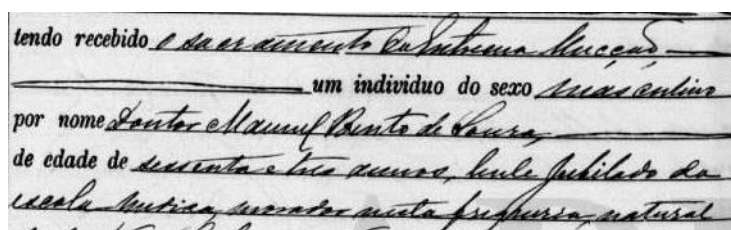 tendo recebido o sacramento da Extrema Uncção
um individuo do sexo masculino
por nome Doutor Manuel Bento de Sousa,
de edade de sessenta e tres annos, lente jubilado da
escola medica, morador nesta freguesia, natural